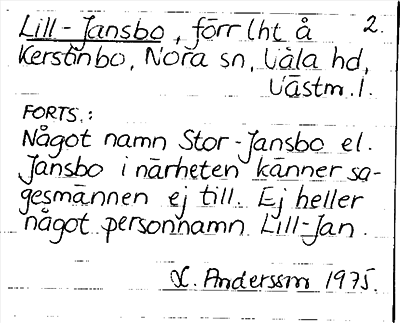 Lill-Jansbo, förr lht å 2.
Kerstinbo, Nora sn, Våla hd,
Västm. l.
FORTS.:
Något namn Stor-Jansbo el.
Jansbo i närheten känner sa-
gesmännen ej till. Ej heller
något personnamn Lill-Jan.
L. Andersson 1975.